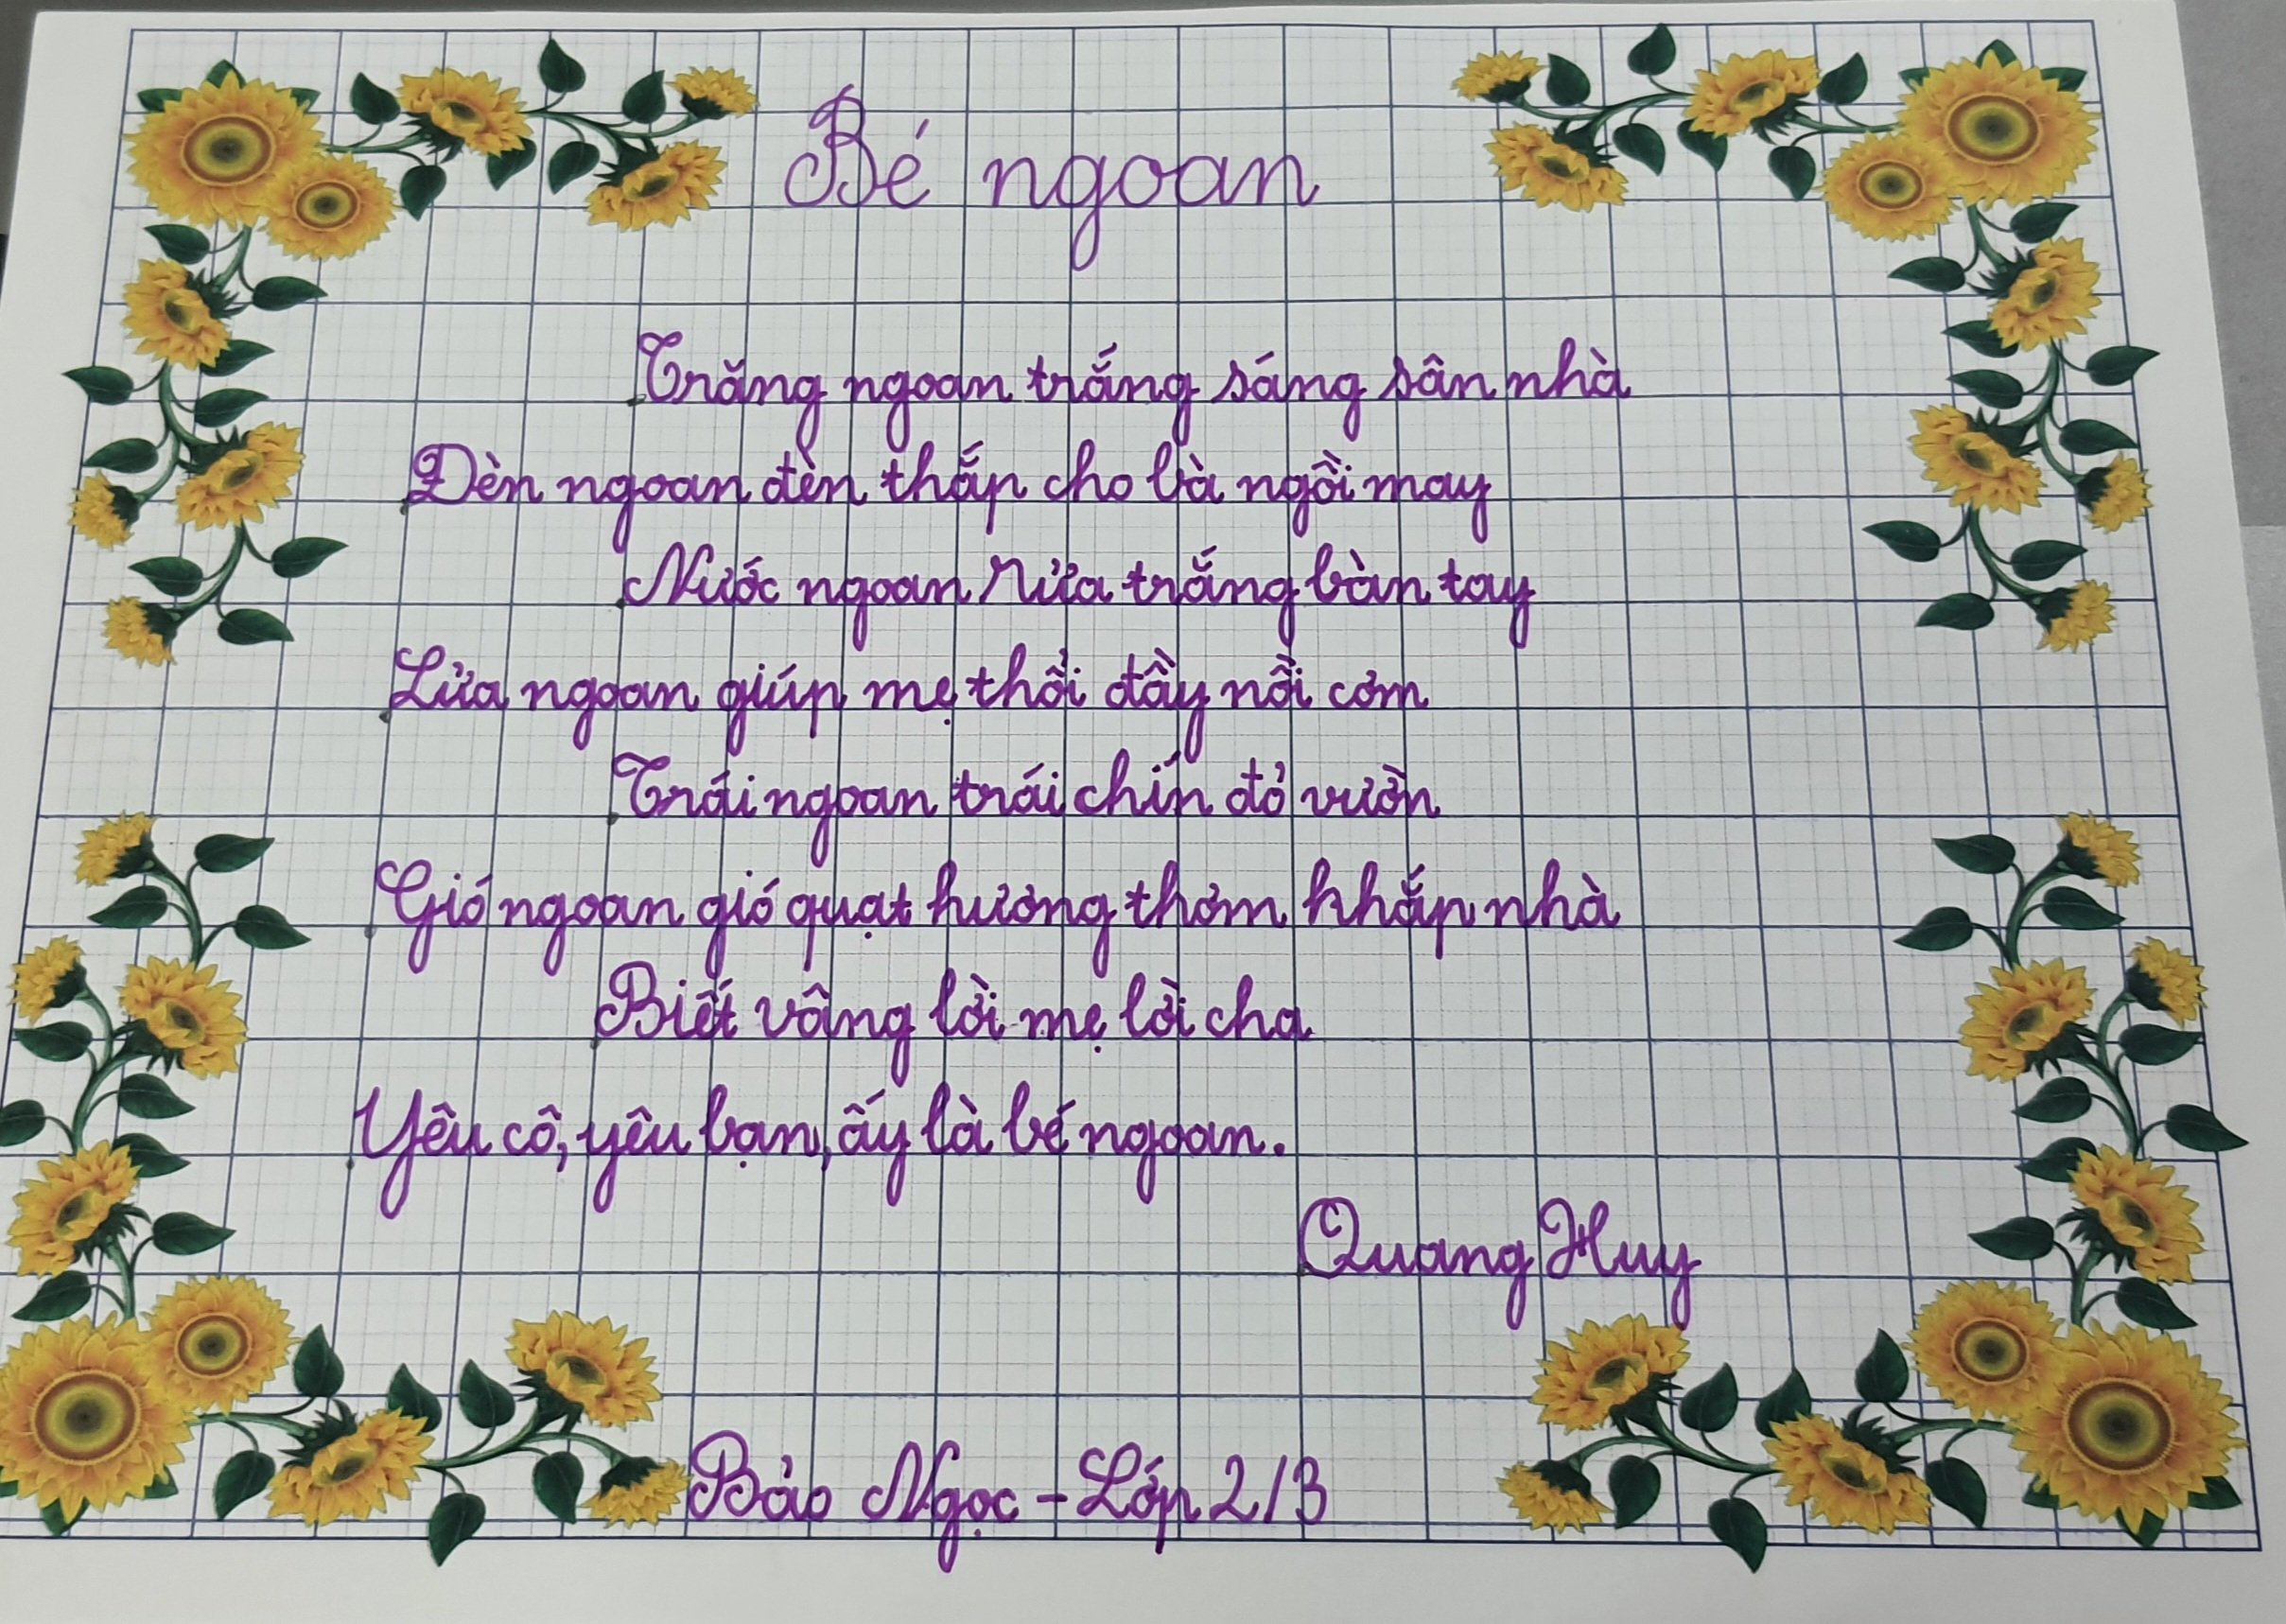 Bé ngoan
Trăng ngoan trắng sáng sân nhà
Đèn ngoan đèn thắp cho bà ngồi may
Nước ngoan rửa trắng bàn tay
Lửa ngoan giúp mẹ thổi đầy nồi cơm
Trái ngoan trái chín đỏ vườn
Gió ngoan gió quạt hương thơm khắp nhà
Biết vâng lời mẹ lời cha
Yêu cô, yêu bạn, ấy là bé ngoan.
Quang Huy
Bảo Ngọc - Lớp 2/3